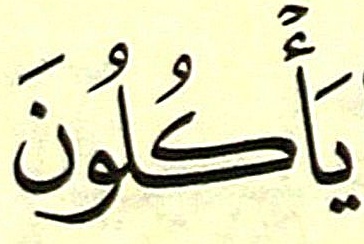 يَأْكُلُونَ